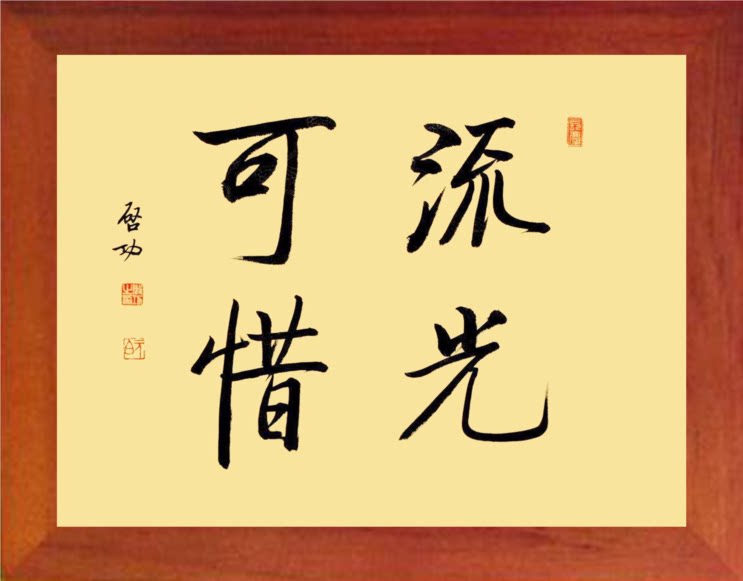 流光
可惜
啓功